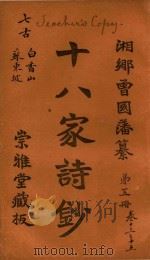 Teacher's Copy.
湘鄉曾國藩纂
第五冊
十八家詩鈔
七古
白香山
蘇東坡
崇雅堂藏板